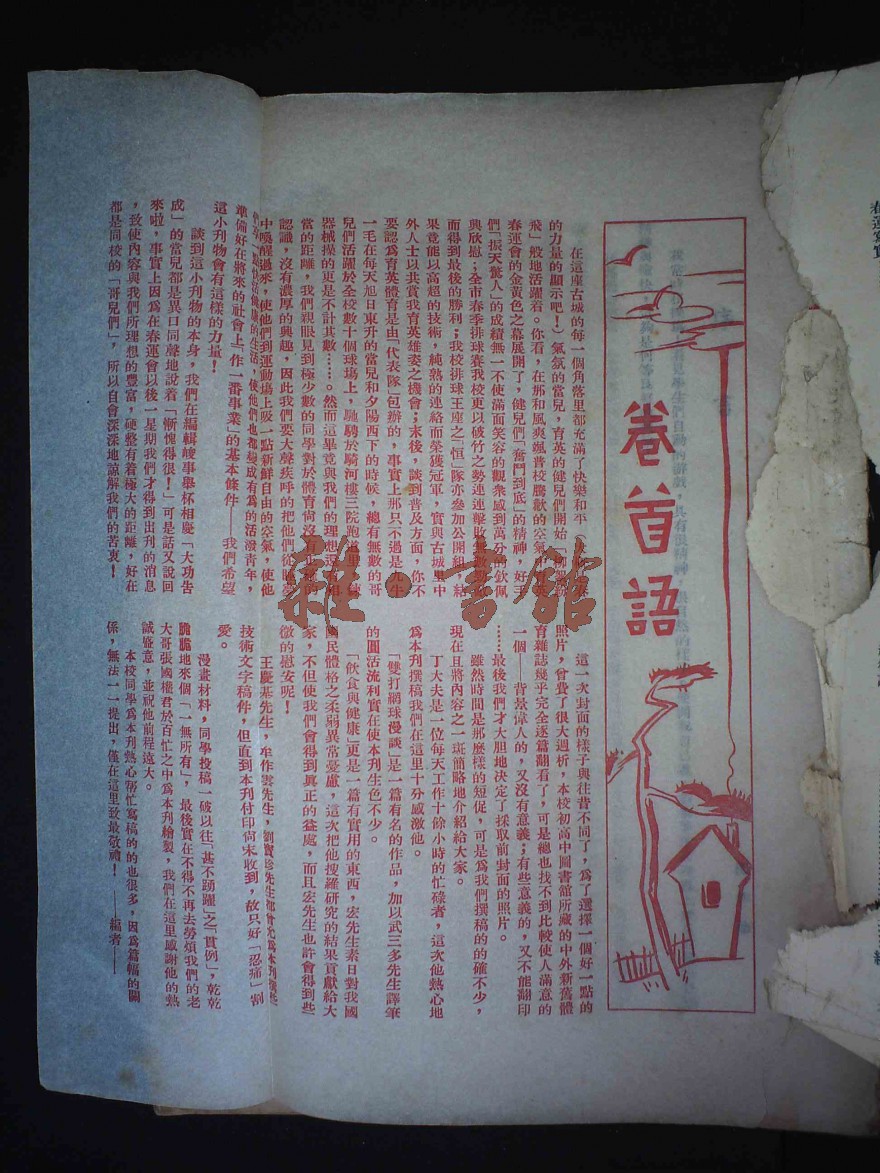 卷首語
在這座古城的每一個角落里都充滿了快樂和平
的力量的顯示吧！）氣氛的當兒，育英的健兒們開始「
飛」般地活躍着。你看，在那和風爽颯普校騰歡的空氣
春運會的金黃色之幕展開了，健兒們「奮鬥到底」的精神，好手
們「振天驚人」的成績無一不使滿面笑容的觀衆感到萬分的欽佩
與欣慰；全市春季排球賽我校更以破竹之勢連連擊敗
而得到最後的勝利；我校排球王座之「恒」隊亦參加公開組，結
果竟能以高超的技術，純熟的連絡而榮獲冠軍，實與古城里中
外人士以共賞我育英雄姿之機會；末後，談到普及方面，你不
要認爲育英體育是由「代表隊」包辦的，事實上那只不過是九牛
一毛在每天旭日東升的當兒和夕陽西下的時候，總有無數的哥
兒們活躍於全校數十個球場上，馳騁於騎河樓三院跑道里，使
器械操的更是不計其數……。然而這畢竟與我們的理想還有相
當的距離，我們親眼見到極少數的同學對於體育尙沒有
認識，沒有濃厚的興趣，因此我們要大聲疾呼的把他們從
中喚醒過來，使他們到運動場上吸一點新鮮自由的空氣，使他
們享一點快樂健康的生活，使他們也都變成有爲的活潑青年，
準備好在將來的社會上「作一番事業」的基本條件——我們希望
這小刋物會有這樣的力量！
談到這小刋物的本身，我們在編輯峻事舉杯相慶「大功告
成」的當兒都是異口同聲地說着「漸愧得很！」可是話又說回
來啦，事實上因爲在春運會以後一星期我們才得到出刋的消息
，致使內容與我們所理想的豐富，硬整有着極大的距離，好在
都是同校的「哥兒們」，所以自會深深地諒解我們的苦衷！
這一次封面的樣子與往昔不同了，爲了選擇一個好一點的
照片，曾費了很大週析，本校初高中圖書館所藏的中外新舊體
育雜誌幾乎完全逐篇翻看了，可是總也找不到比較使人滿意的
一個——背景偉人的，又沒有意義；有些意義的，又不能翻印
……最後我們才大胆地決定了採取前封面的照片。
雖然時間是那麼樣的短促，可是爲我們撰稿的的確不少，
現在且將內容之一斑簡略地介紹給大家。
丁大夫是一位每天工作十餘小時的忙碌者，這次他熱心地
爲本刋撰稿我們在這里十分感激他。
「雙打網球漫談」是一篇有名的作品，加以武三多先生譯筆
的圓活流利實在使本刋生色不少。
「飲食與健康」更是一篇有實用的東西，宏先生素日對我國
國民體格之柔弱異常憂慮，這次把他搜羅研究的結果貢獻給大
家，不但使我們會得到眞正的益處，而且宏先生也許會得到些
微的慰安呢！
王慶基先生，牟作雲先生，劉寶
技術文字稿件，但直到本刋付印尙未收到，故只好「忍痛」割
愛。
漫畫材料，同學投稿一破以往「甚不踴躍」之「貫例」，乾乾
脆脆地來個「一無所有」，最後實在不得不再去勞煩我們的老
大哥張國權君於百忙之中爲本刋繪製，我們在這里感謝他的熱
誠盛意，並祝他前程遠大。
本校同學爲本刋熱心幫忙寫稿的的也很多，因爲篇輻的關
係，無法一一提出，僅在這里致最敬禮！ ——編者——
雜·書館